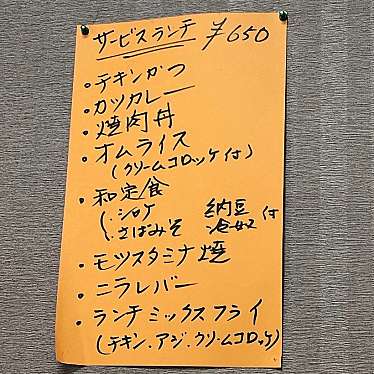 サービスランチ ¥650
・チキンかつ
・カツカレー
・焼肉丼
・オムライス
(クリームコロッケ付)
・和定食
(・シャケ 納豆
・さばみそ 冷奴 付
・モツスタミナ焼
・ニラレバー
・ランチミックスフライ
(チキン.アジ.クリームコロッケ)